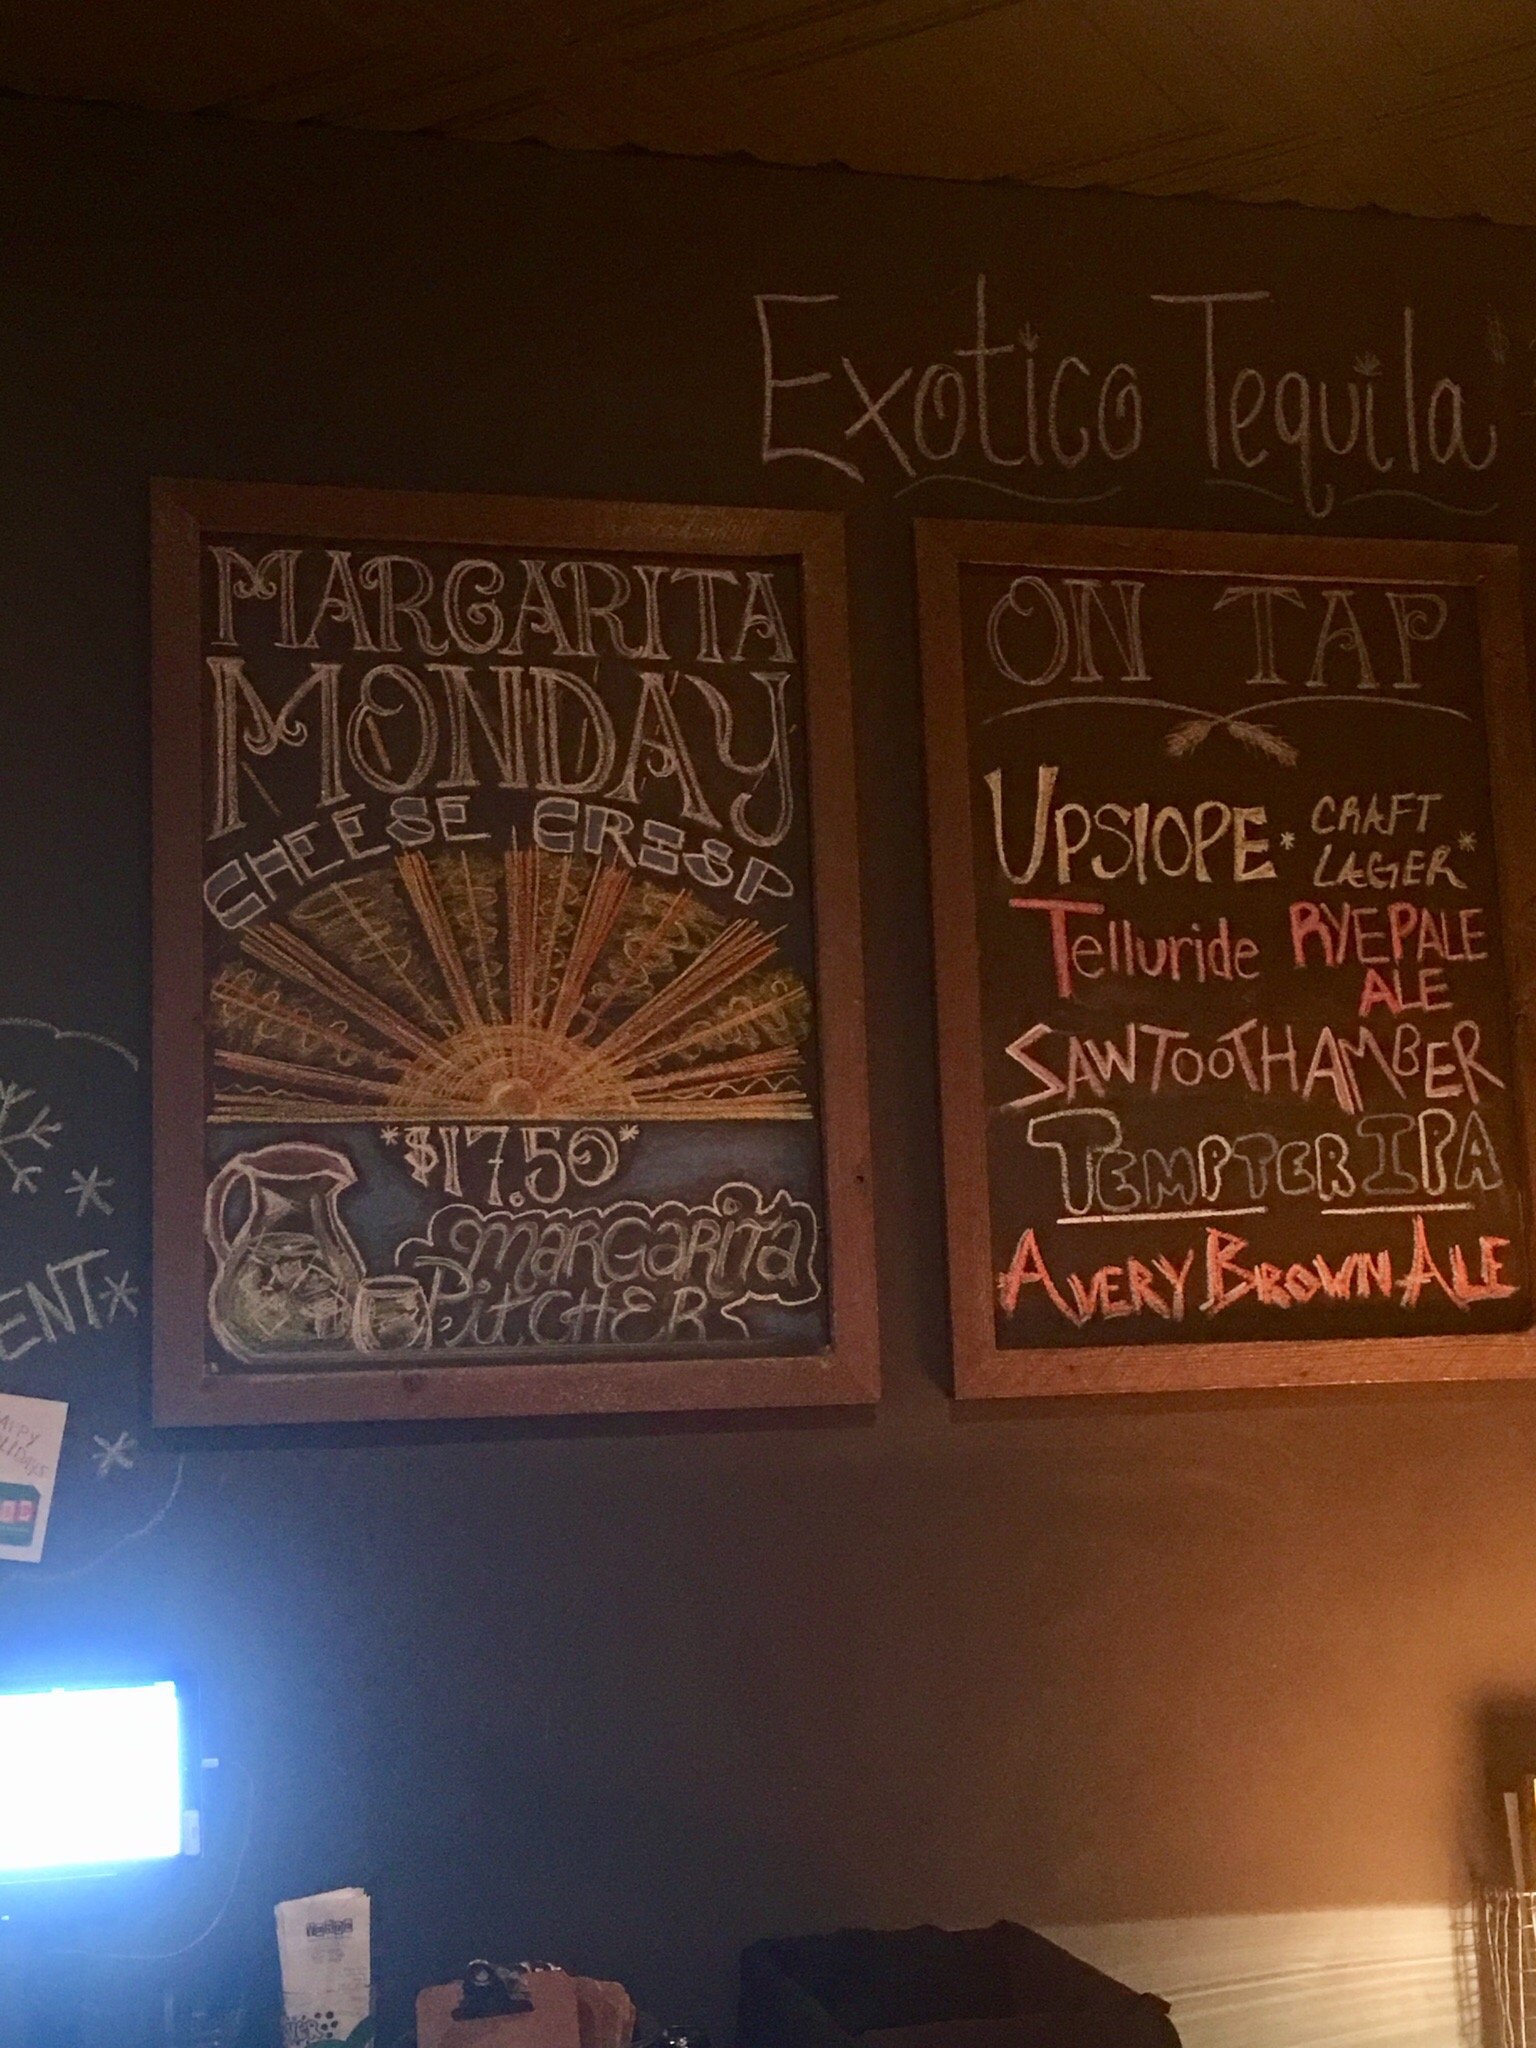 Exotico Tequila
MARGARITA
MONDAY
CHEESE CRISP
*$17.50*
MARGARITA
PITCHER
ON TAP
UPSlOPE * CRAFT
LAGER *
Telluride RYE PALE
ALE
SAWTOOTH AMBER
TEMPTER IPA
AVERY BROWN ALE
ENT*